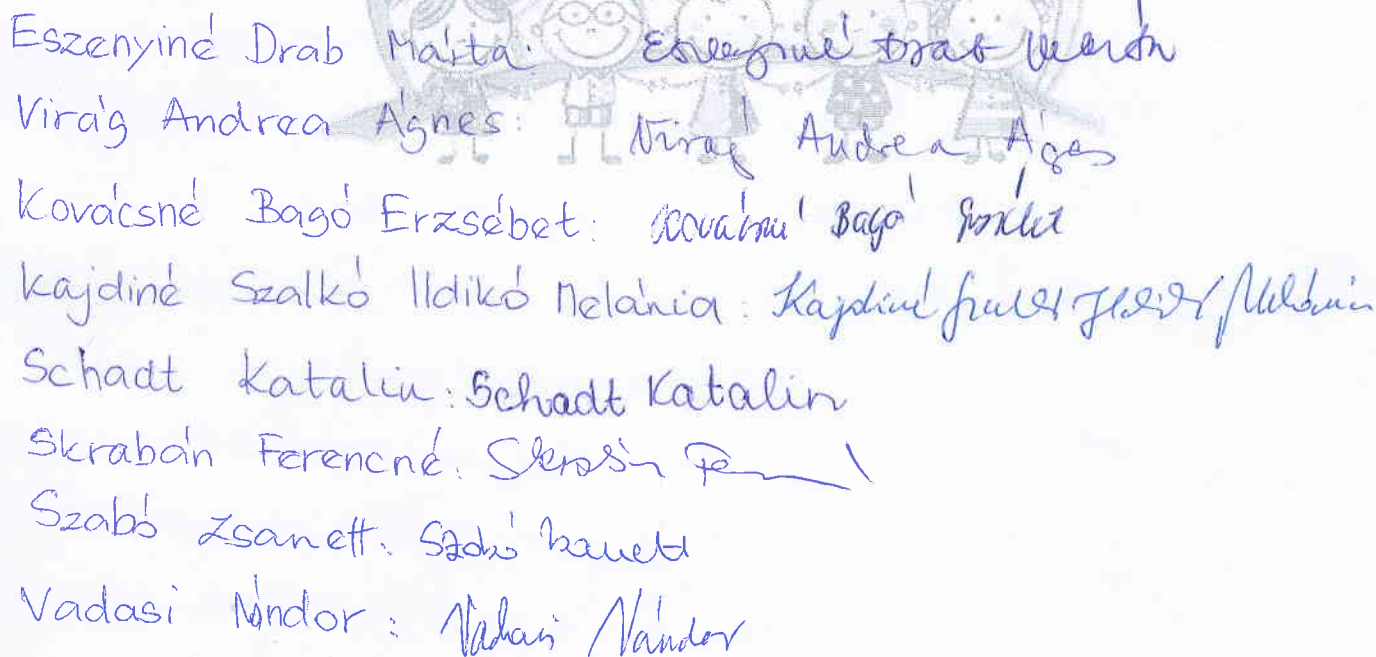 Eszenyiné Drab Márta: Eszenyiné Drab Márta
Virág Andrea Ágnes: Virág Andrea Ágnes
Kovácsné Bagó Erzsébet: Kovácsné Bagó Erzsébet
Kajdiné Szalkó Ildikó Melánia: Kajdiné Szalkó Ildikó Melánia
Schadt Katalin: Schadt Katalin
Skrabán Ferencné: Skrabán
Szabó Zsanett: Szabó Zsanett
Vadasi Nándor: Vadasi Nándor